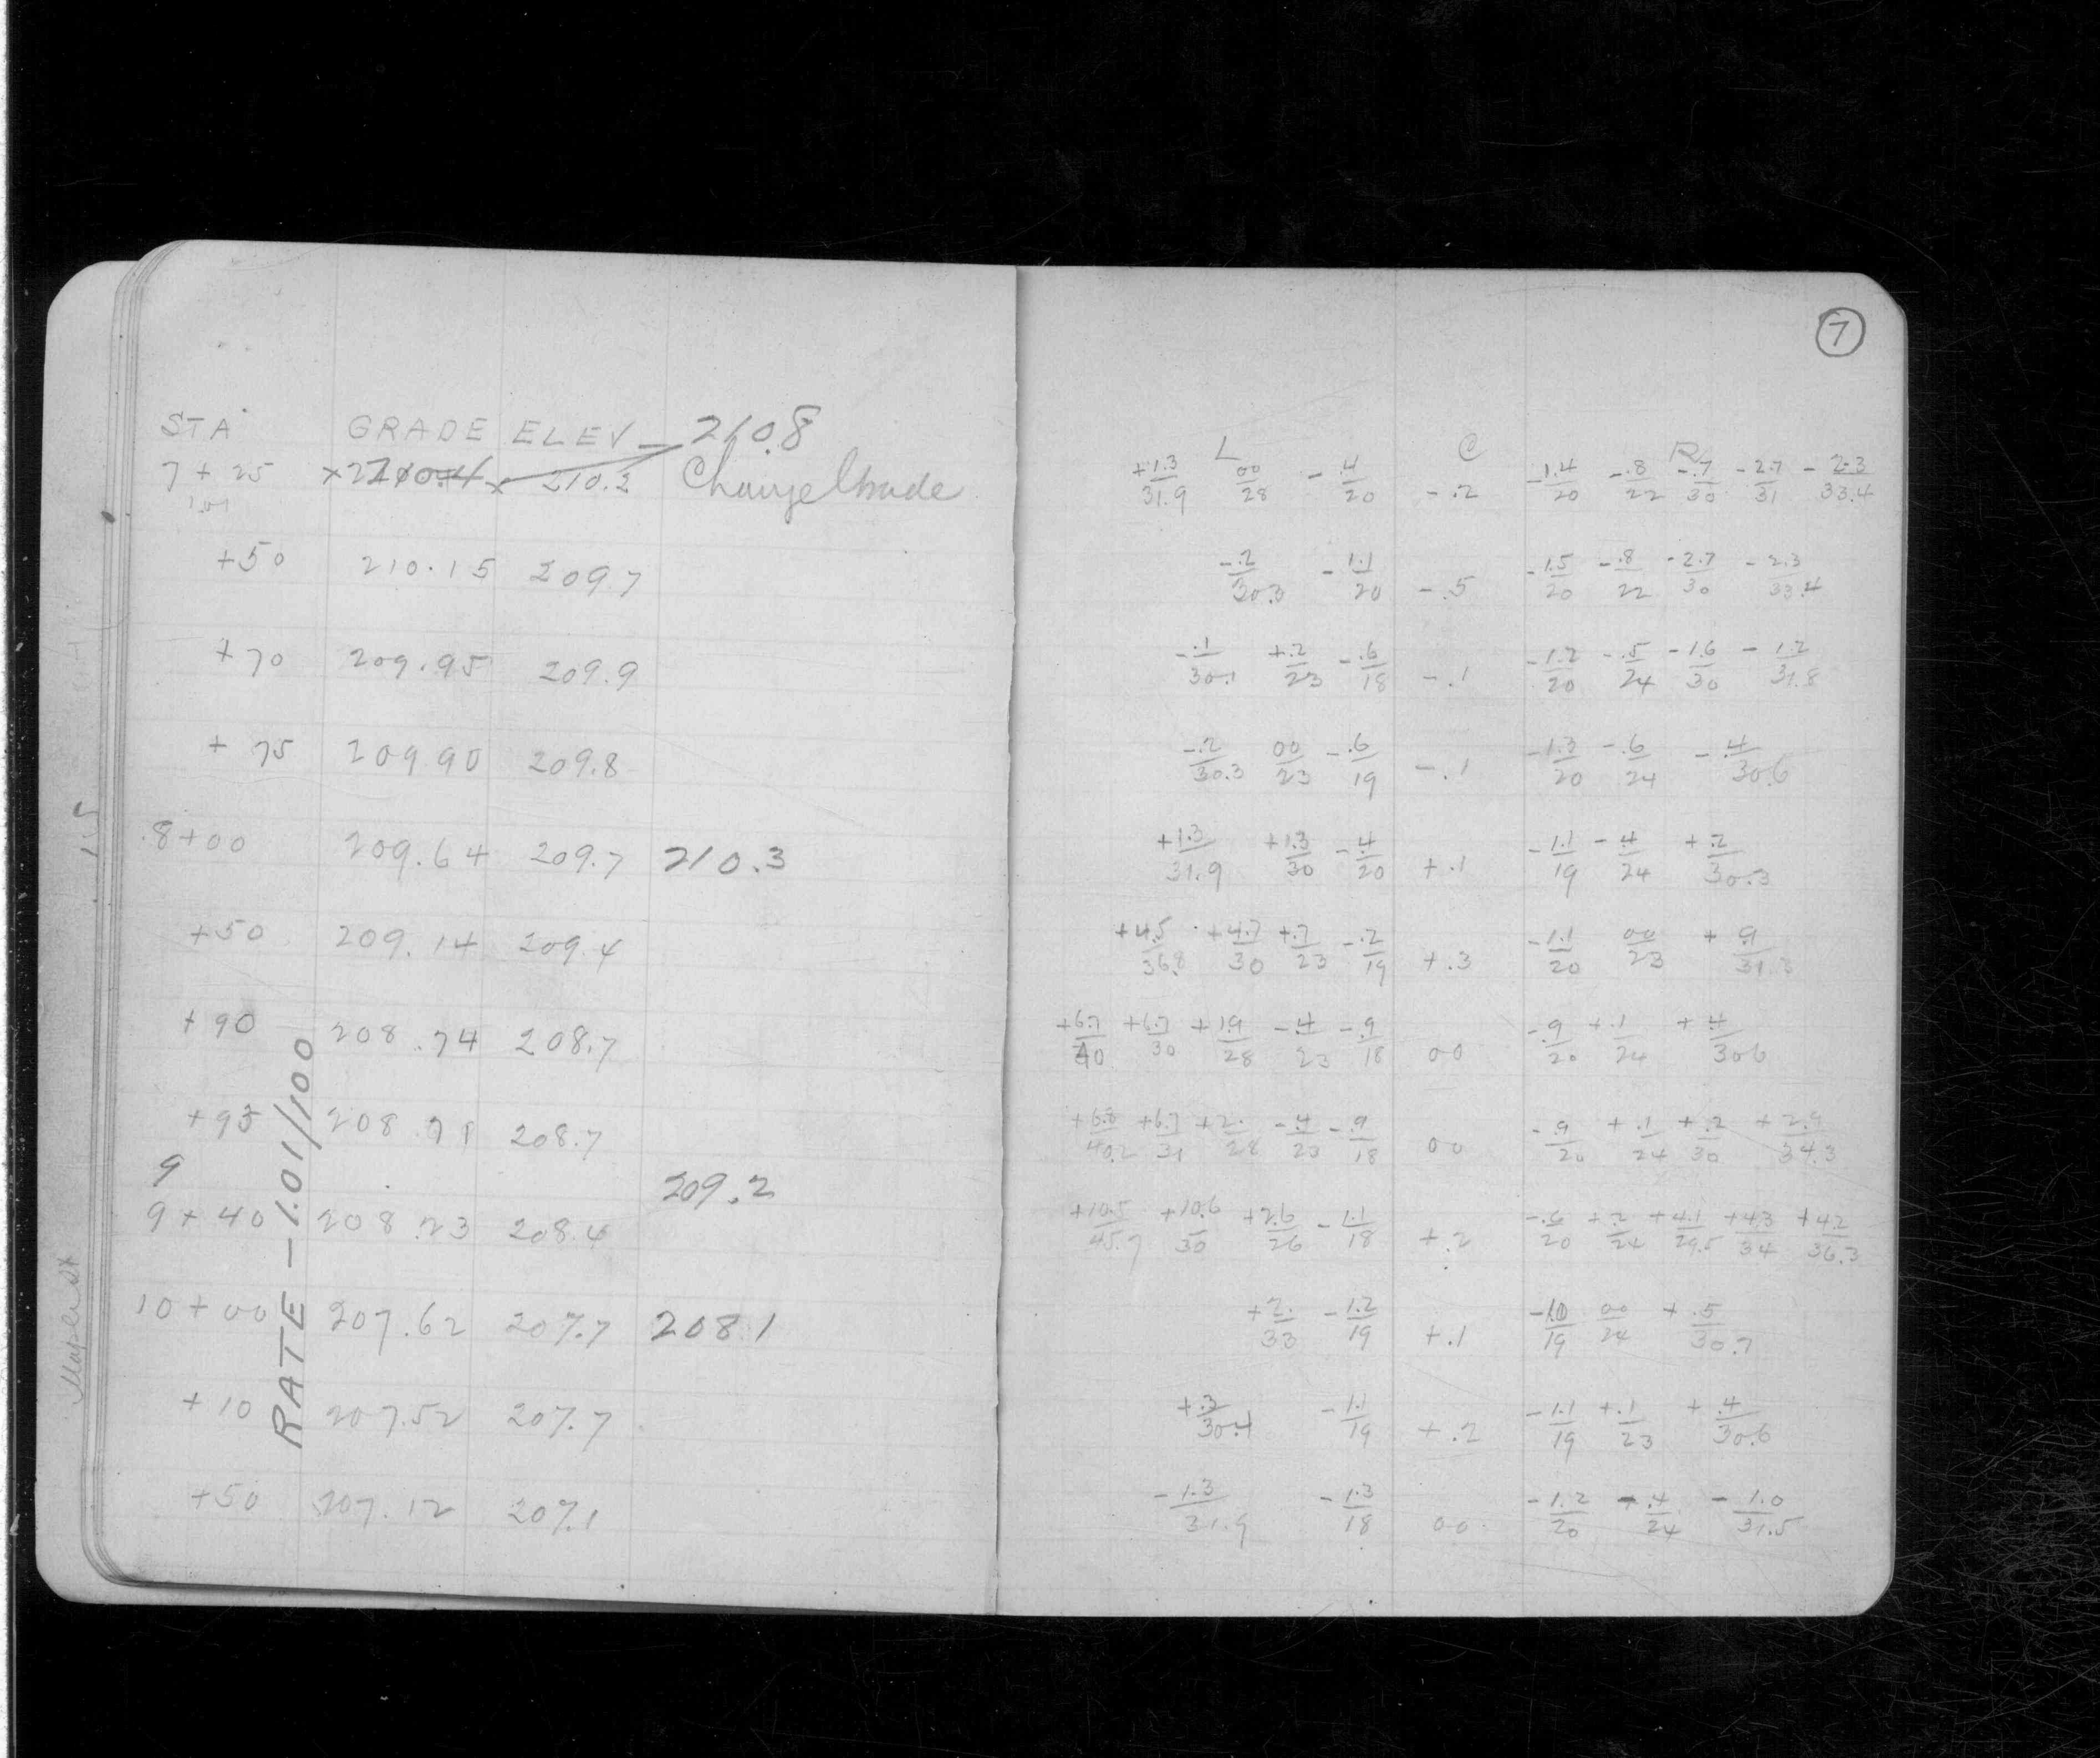 7
STA GRADE ELEV 210.8
7+25 210.4 210.2 Change Grade
1.01
+50 210.15 209.7
+70 209.95 209.9
+75 209.90 209.8
8+00 209.64 209.7 210.3
+50 209.14 209.4
+90 208.74 208.7
+93 208.71 208.7
9 209.2
9+40 208.23 208.4
10+00 207.62 207.7 208.1
+10 207.52 207.7
+50 207.12 207.1
RATE -1.01/100
L C R
+1.3/31.9 00/28 -.4/20 -.2 -1.4/20 -.8/22 -.7/30 -2.7/31 -2.3/33.4
-.2/30.3 -1.1/20 -.5 -1.5/20 -.8/22 -2.7/30 -2.3/33.4
-.1/30.1 +.2/23 -.6/18 -.1 -1.2/20 -.5/24 -1.6/30 -1.2/31.8
-.2/30.3 00/23 -.6/19 -.1 -1.3/20 -.6/24 -.4/30.6
+1.3/31.9 +1.3/30 -.4/20 +.1 -1.1/19 -.4/24 +.2/30.3
+4.5/36.8 +4.7/30 +.7/23 -.2/19 +.3 -1.1/20 00/23 +.9/31.3
+6.7/40 +6.7/30 +1.9/28 -.4/23 -.9/18 00 -.9/20 +.1/24 +.4/30.6
+6.8/40.2 +6.7/31 +2./28 -.4/23 -.9/18 00 -.9/20 +.1/24 +.2/30 +2.9/34.3
+10.5/45.7 +10.6/35 +2.6/26 -1.1/18 +.2 -.6/20 +.2/24 +4.1/29.5 +4.3/34 +4.2/36.3
+2./33 -1.2/19 +.1 -1.0/19 00/24 +.5/30.7
+.3/30.4 -1.1/19 +.2 -1.1/19 +.1/23 +.4/30.6
-1.3/31.9 -1.3/18 00 -1.2/20 -.4/24 -1.0/31.5